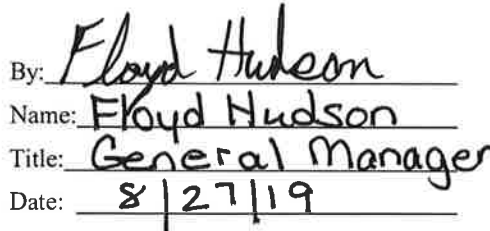 By: Floyd Hudson
Name: Floyd Hudson
Title: General Manager
Date: 8/27/19